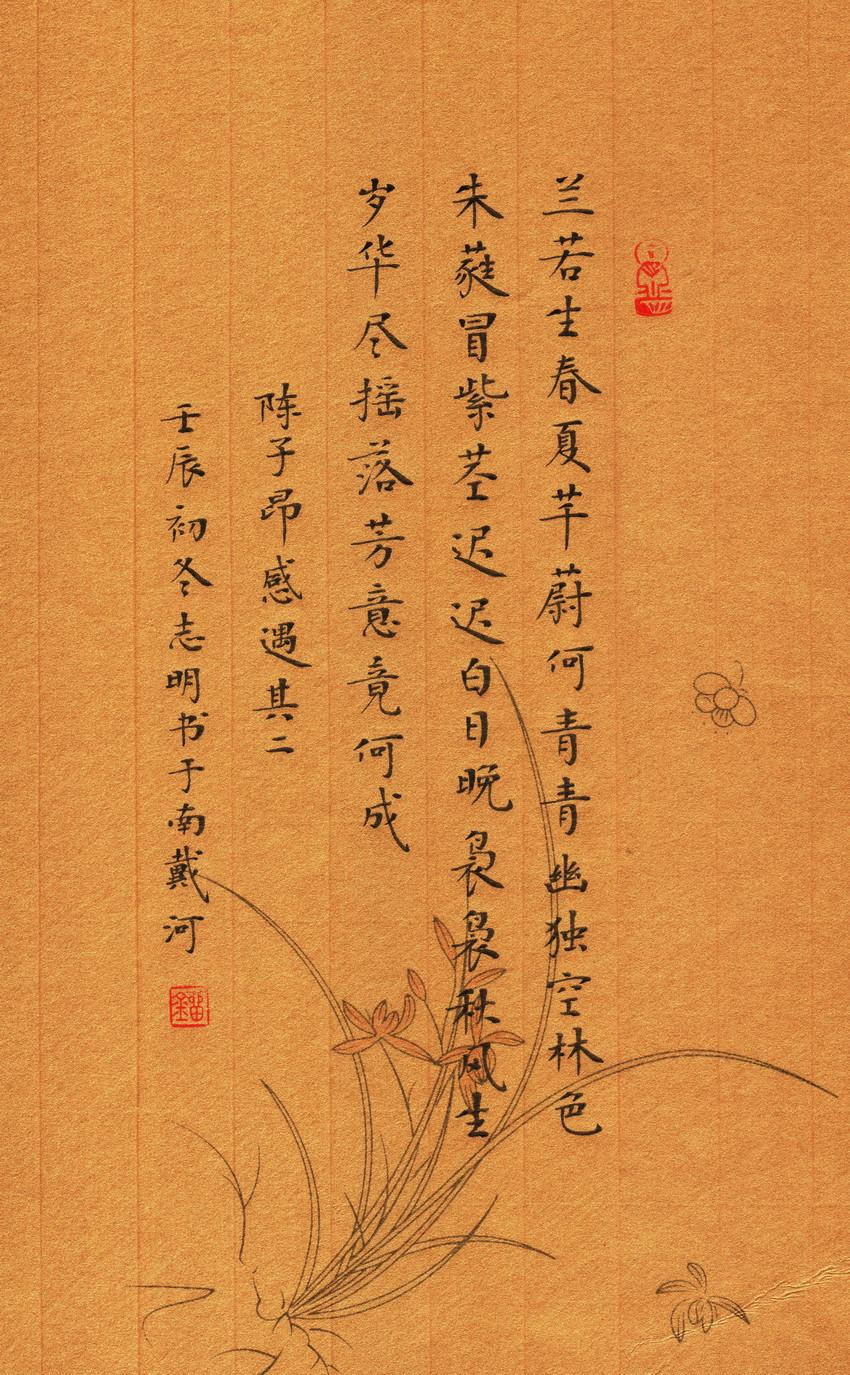 兰若生春夏芊蔚何青青幽独空林色
朱蕤冒紫茎迟迟白日晚袅袅秋风生
岁华尽摇落芳意竟何成
陈子昂感遇其二
壬辰初冬志明书于南戴河